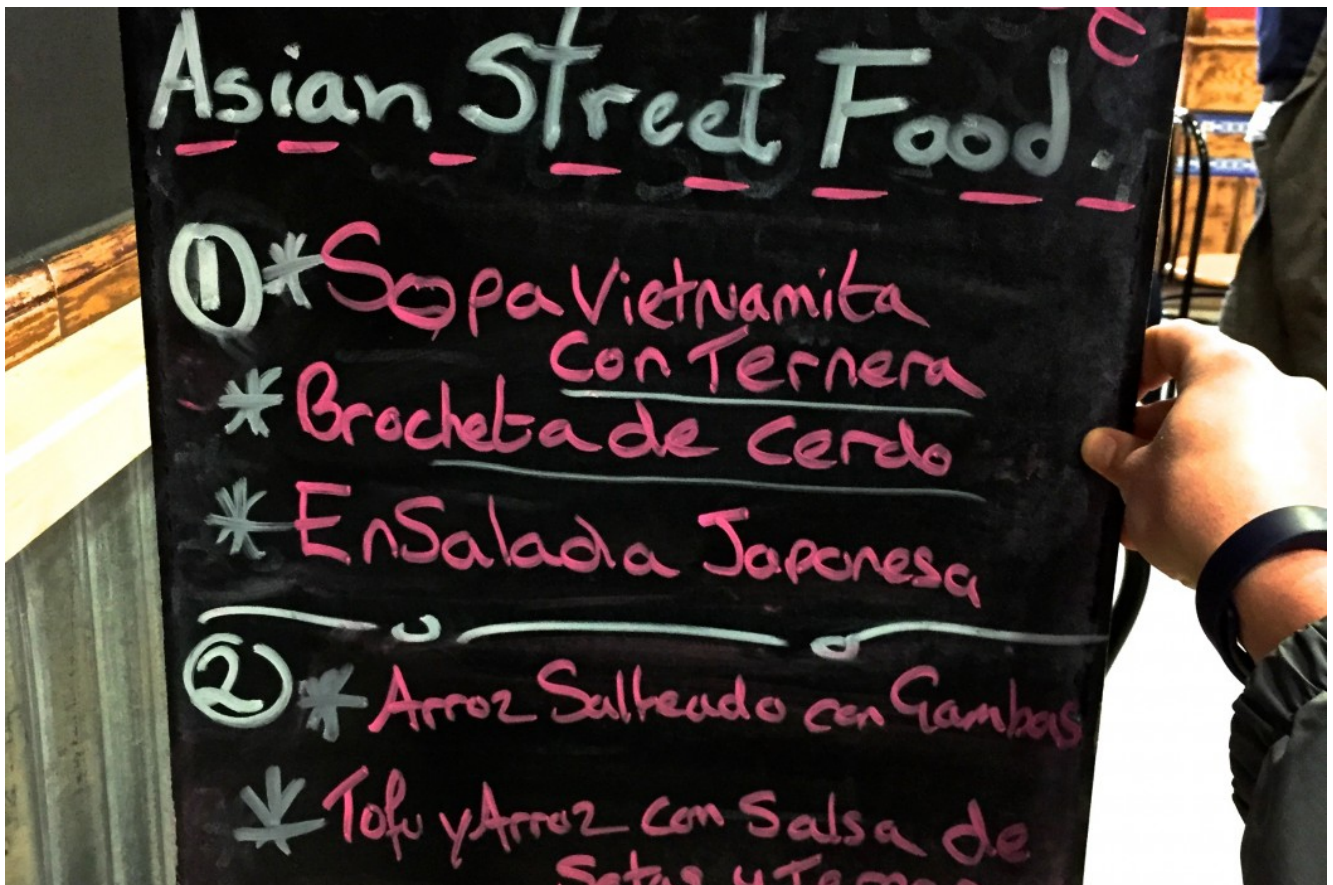 Asian Street Food.
1 * Sopa Vietnamita
con Ternera
* Brocheta de Cerdo
* Ensalada Japonesa
2 * Arroz Salteado con Gambas
* Tofu y Arroz con Salsa de
Setas y